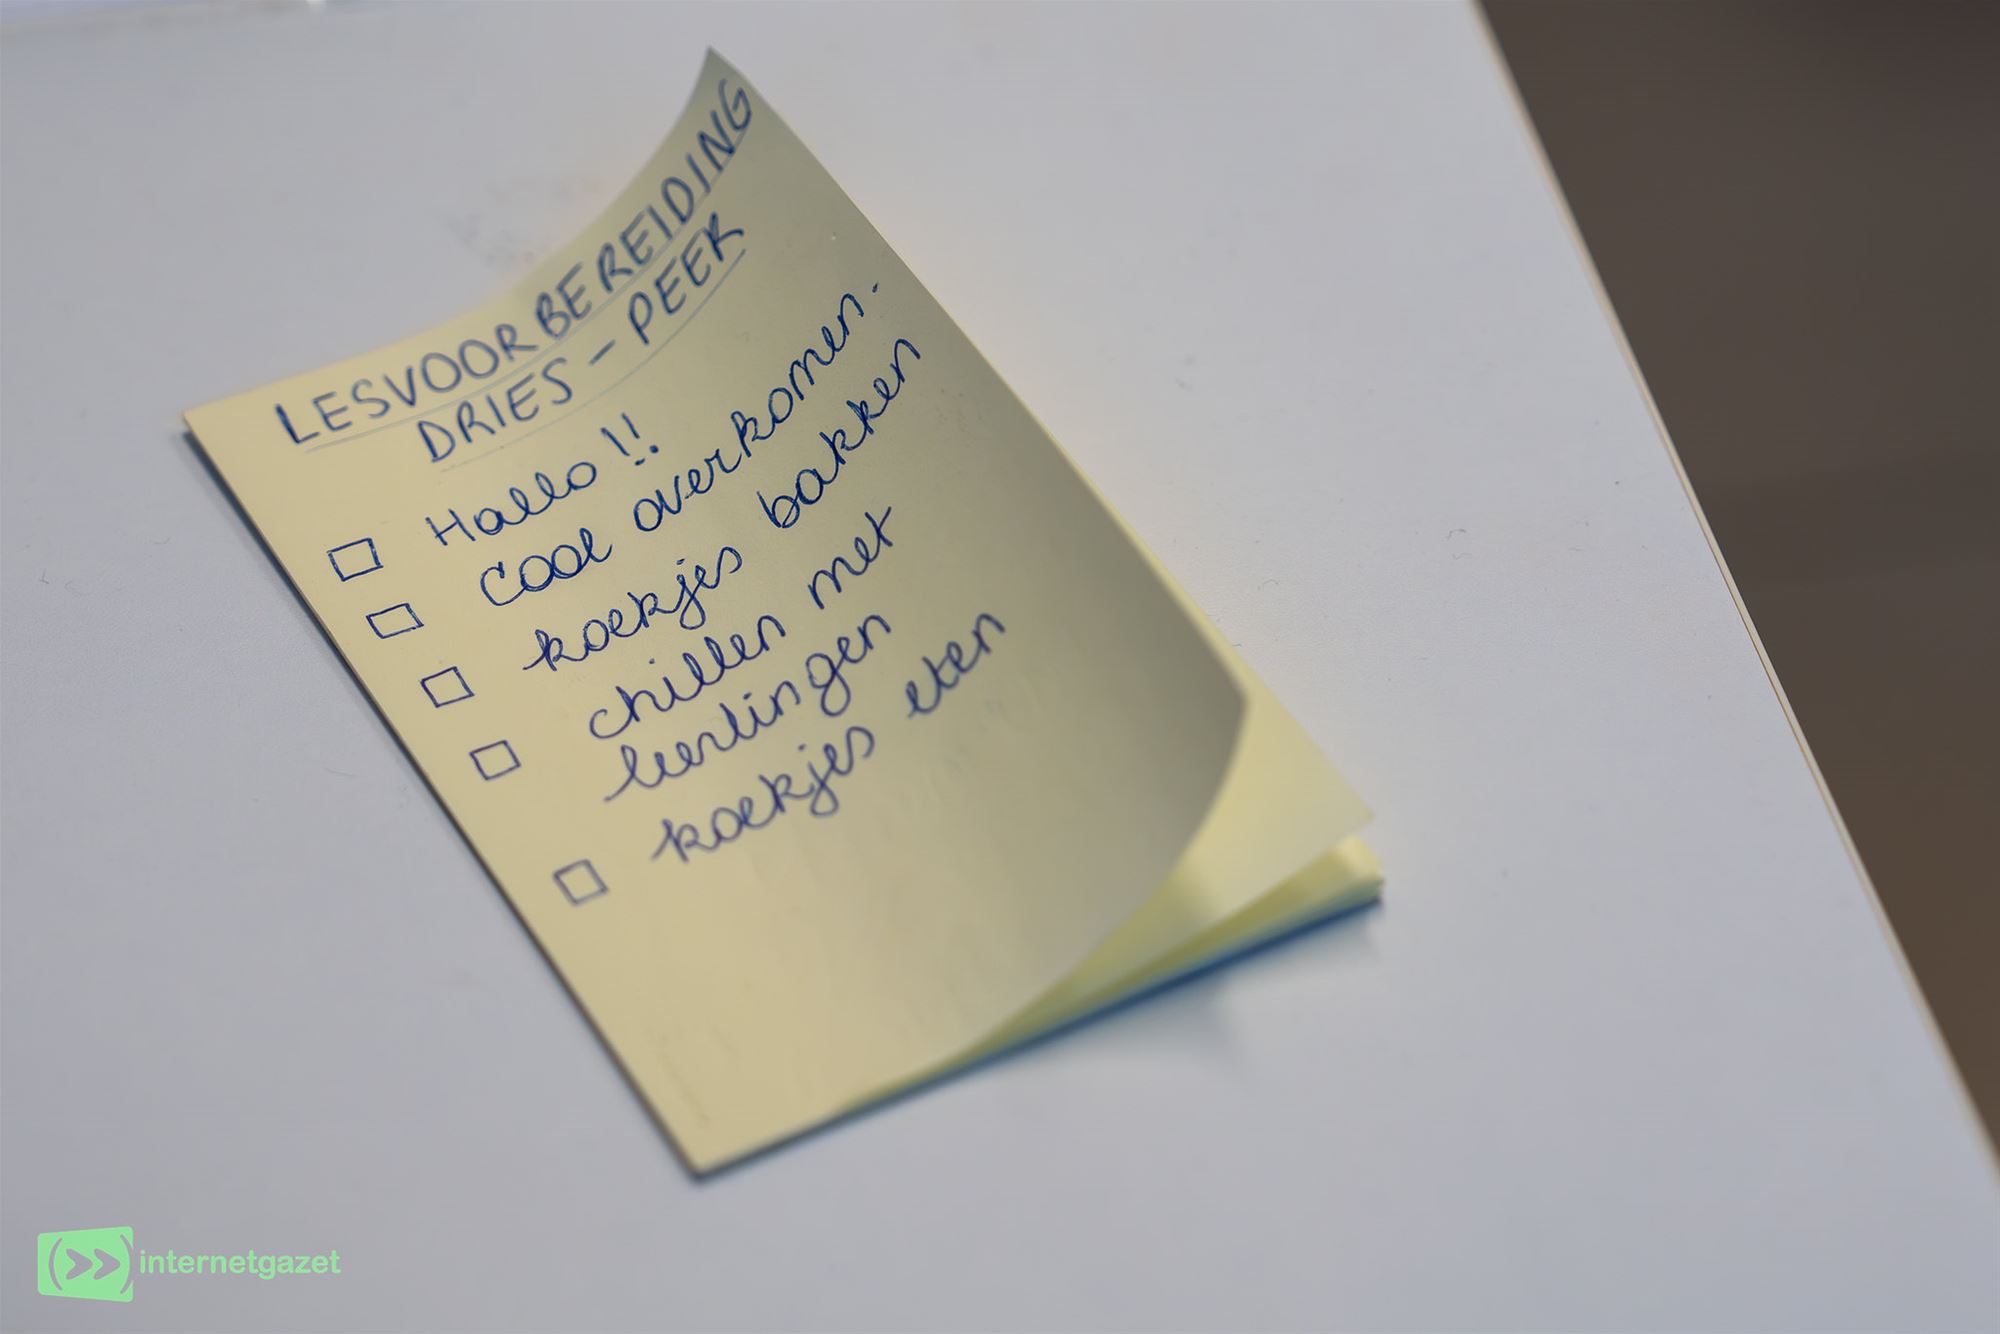 LESVOORBEREIDING
DRIES - PEEK
Hallo !!
cool overkomen.
koekjes bakken
chillen met
leerlingen
koekjes eten
internetgazet